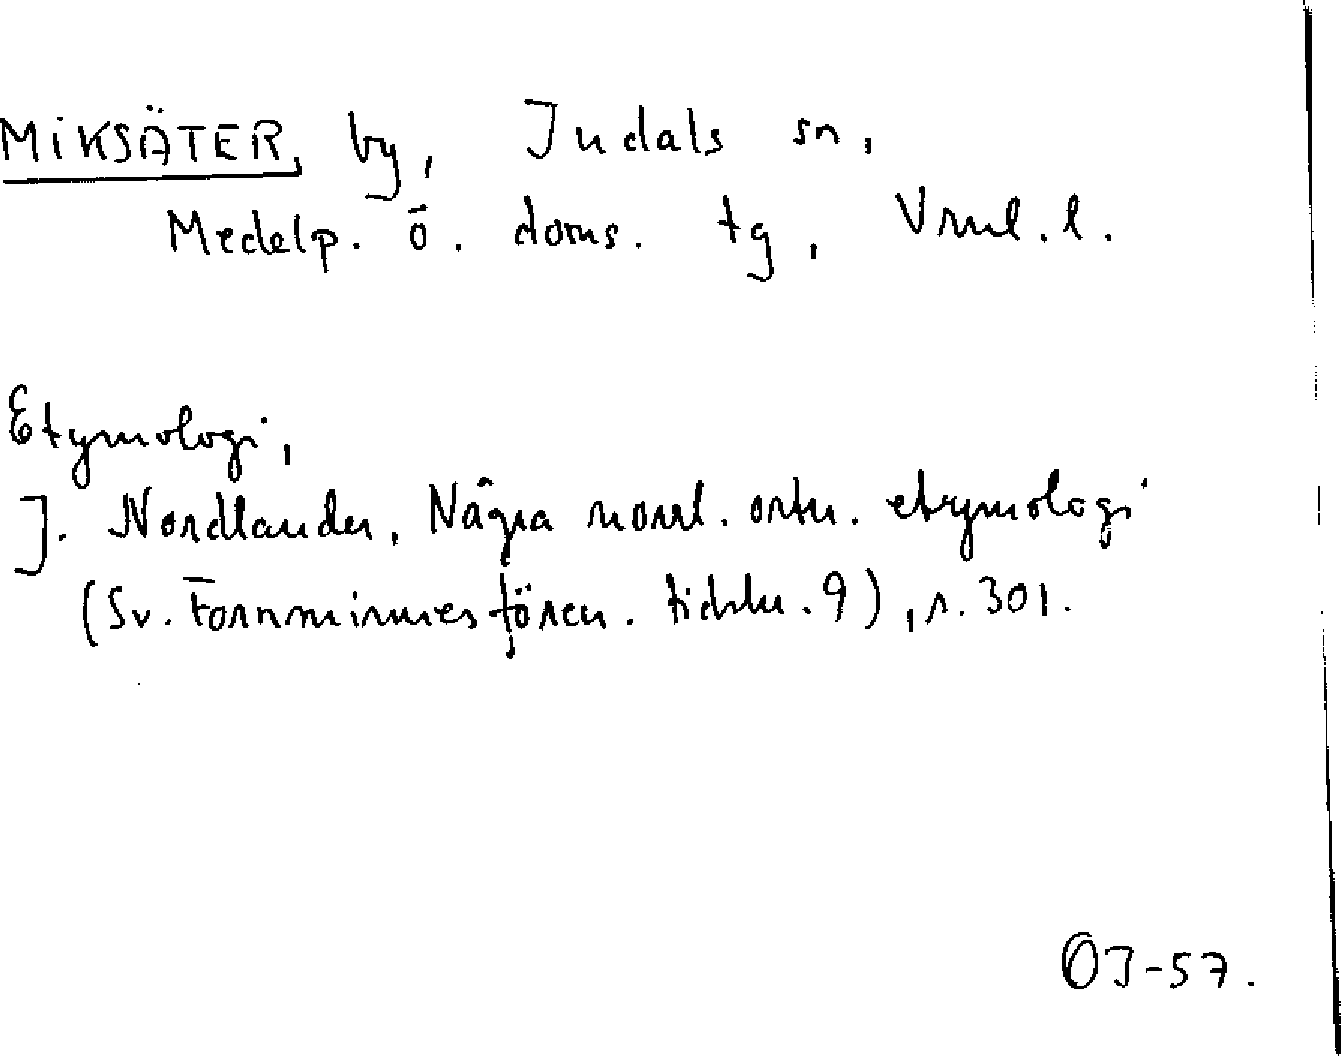 MIKSÄTER, by, Indals sn,
Medelp. ö. doms. tg, Vnrl. l.
Etymologi,
J. Nordlander, Några norrl. ortn. etymologi
(Sv. Fornminnesfören. tidskr. 9), s. 301.
OJ-57.